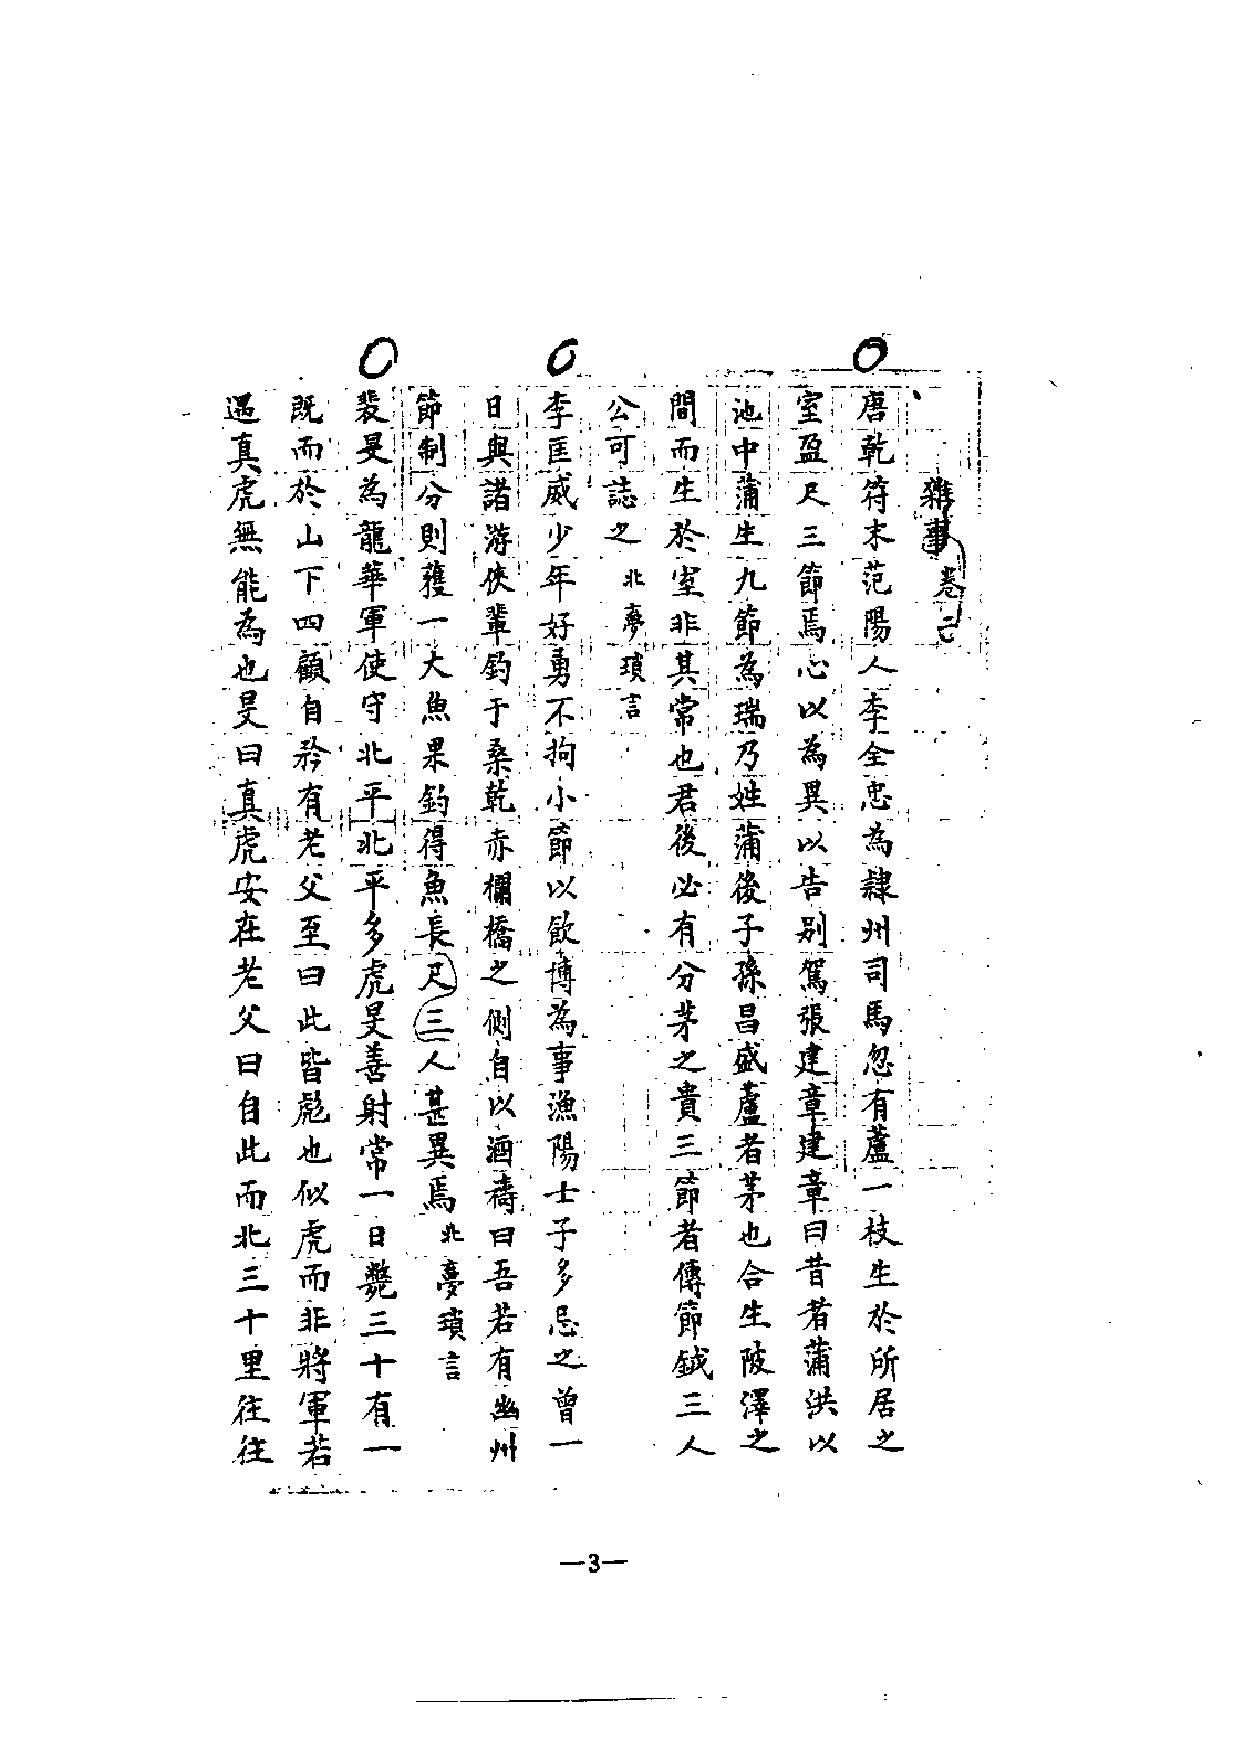 雜事卷二
唐乾符末范陽人李全忠為隸州司馬忽有蘆一枝生於所居之
室盈尺三節焉心以為異以告別駕張建章建章曰昔者蒲洪以
池中蒲生九節為瑞乃姓蒲後子孫昌盛蘆者茅也合生陂澤之
間而生於室非其常也君後必有分茅之貴三節者傳節鉞三人
公可誌之 北夢瑣言
李匡威少年好勇不拘小節以飲博為事漁陽士子多忌之曾一
日與諸游俠輩釣于桑乾赤欄橋之側自以酒禱曰吾若有幽州
節制分則獲一大魚果釣得魚長尺三人甚異焉 北夢瑣言
裴旻為龍華軍使守北平北平多虎旻善射常一日斃三十有一
既而於山下四顧自矜有老父至曰此皆彪也似虎而非將軍若
遇真虎無能為也旻曰真虎安在老父曰自此而北三十里往往
—3—